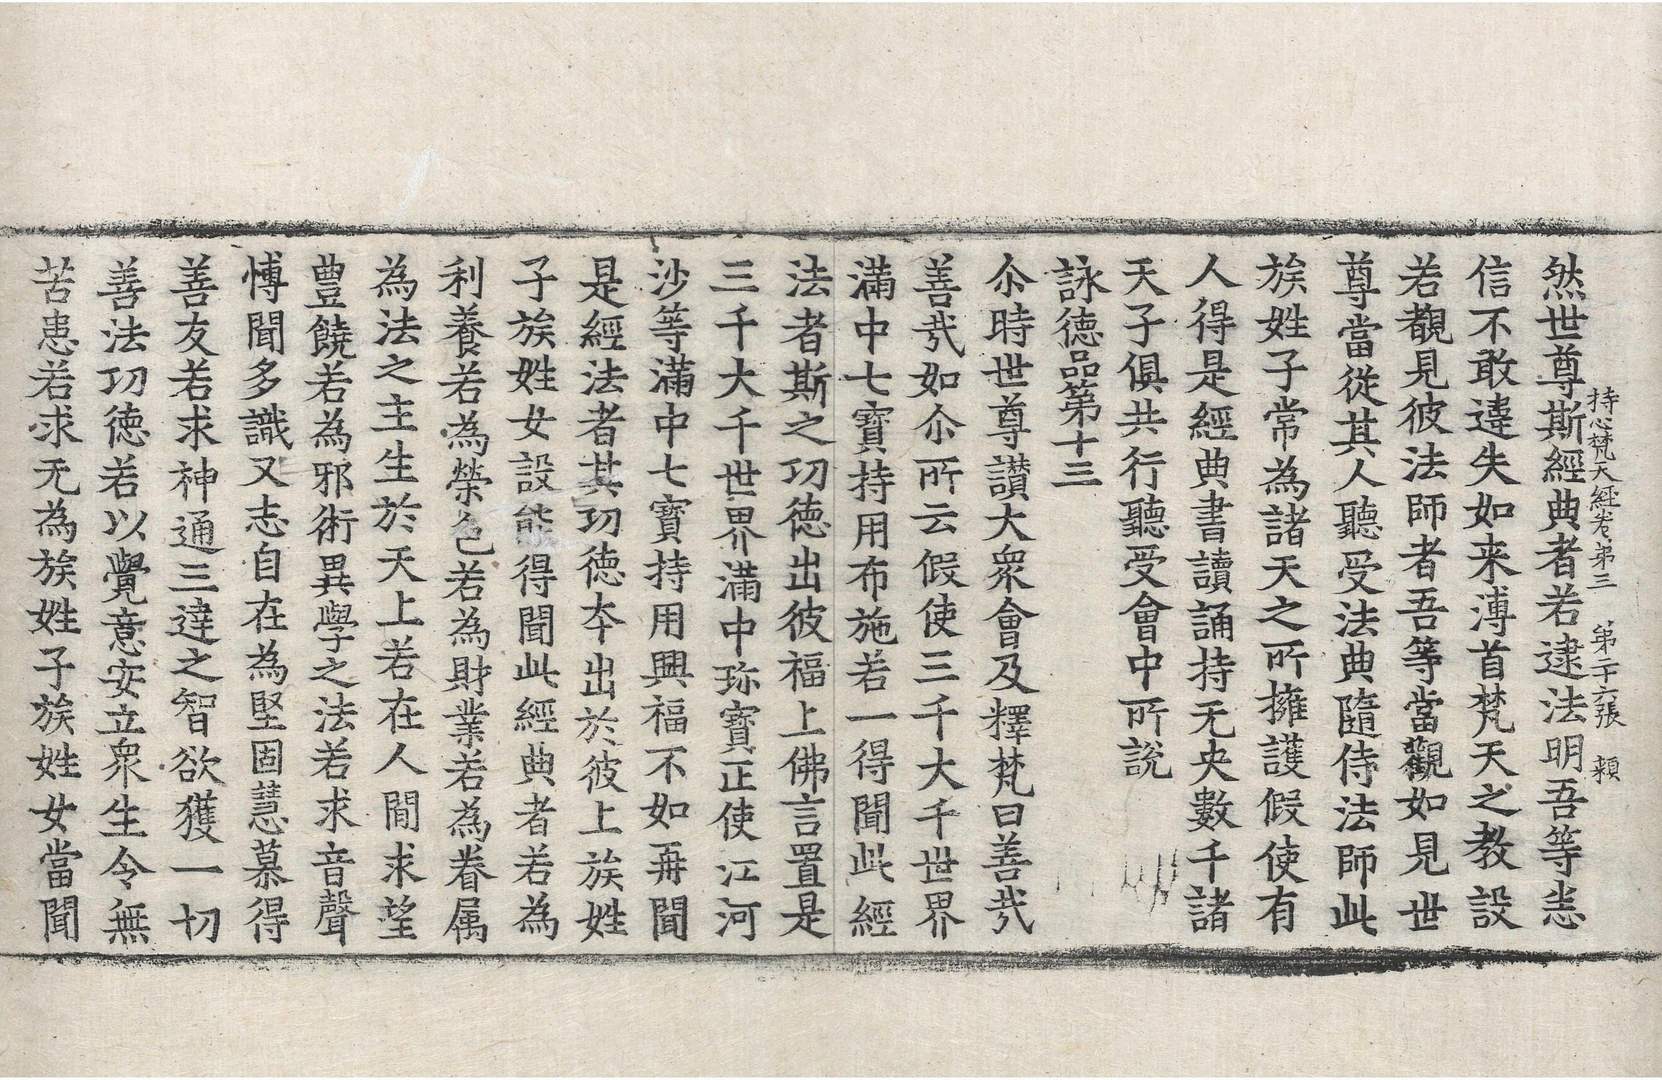 持心梵天經卷第三　第二十六張　賴
然世尊斯經典者若逮法明吾等恙
信不敢違失如来溥首梵天之教設
若覩見彼法師者吾等當觀如見世
尊當從其人聽受法典隨侍法師此
族姓子常為諸天之所擁護假使有
人得是經典書讀誦持无央數千諸
天子俱共行聽受會中所說
詠德品第十三
尒時世尊讃大衆會及釋梵曰善㢤
善㢤如尒所云假使三千大千世界
滿中七寶持用布施若一得聞此經
法者斯之功德出彼福上佛言置是
三千大千世界滿中珎寶正使江河
沙等滿中七寶持用興福不如再聞
是經法者其功德夲出於彼上族姓
子族姓女設能得聞此經典者若為
利養若為榮色若為財業若為眷属
為法之主生於天上若在人間求望
豊饒若為邪術異學之法若求音聲
愽聞多識又志自在為堅固慧慕得
善友若求神通三達之智欲獲一切
善法功德若以覺意安立衆生令無
苦患若求无為族姓子族姓女當聞